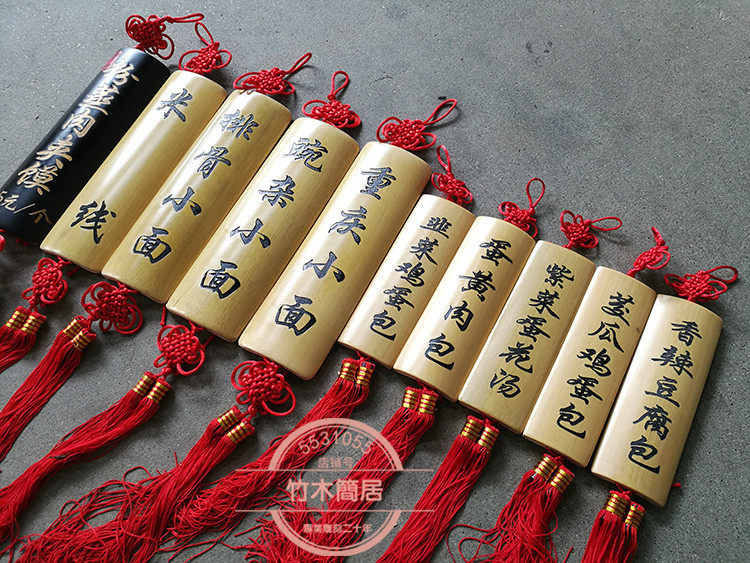 粉蒸肉夹馍
元/个
米线
排骨小面
豌杂小面
重庆小面
韭菜鸡蛋包
蛋黄肉包
紫菜蛋花汤
茭瓜鸡蛋包
香辣豆腐包
5531055
店铺号
竹木簡居
專業雕刻二十年